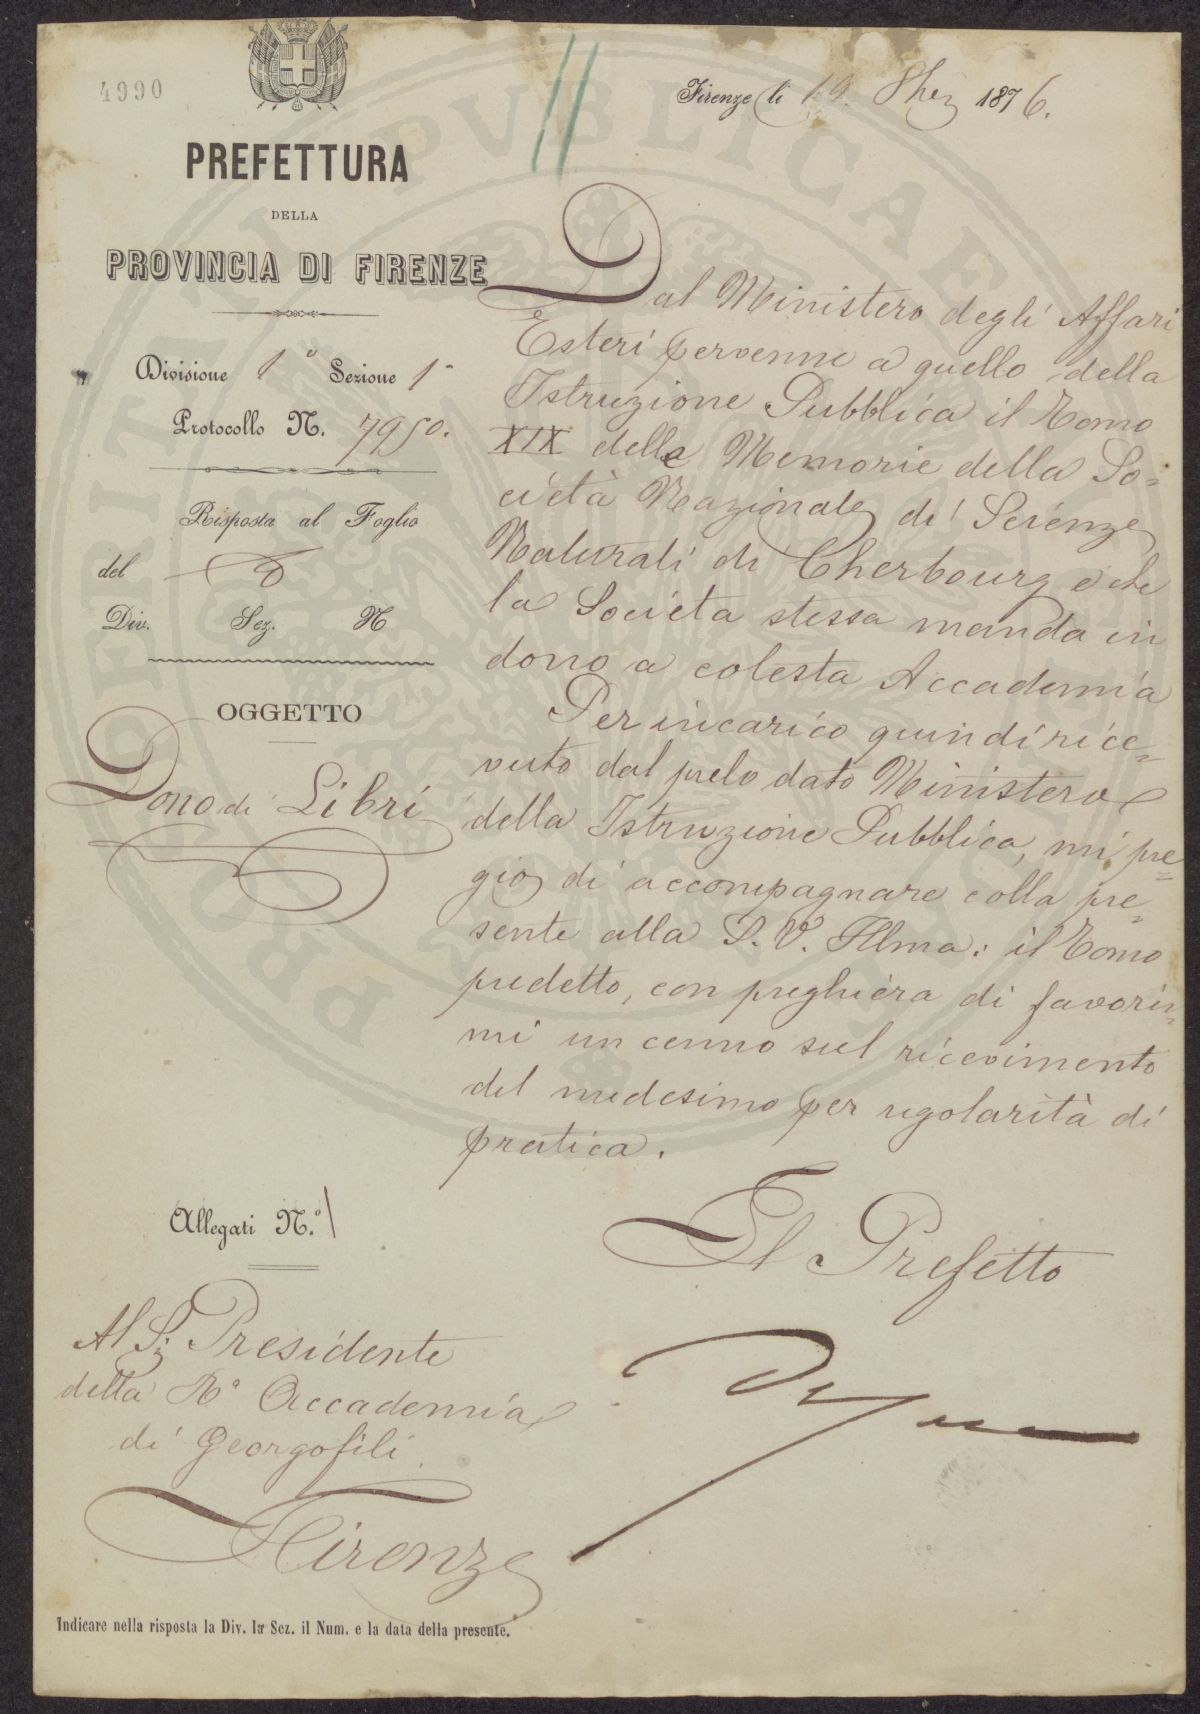 4990
11
Firenze li 19. 8bre 1876.
PREFETTURA
DELLA
PROVINCIA DI FIRENZE
Divisione 1ª Sezione 1ª
Protocollo N. 7950.
Risposta al Foglio
del
Div. Sez. N
OGGETTO
Dono di Libri
Dal Ministero degli Affari
Esteri pervenne a quello della
Istruzione Pubblica il Tomo
XIX delle Memorie della So-
cietà Nazionale di Scienze
Naturali di Cherbourg e che
la Società stessa manda in
dono a cotesta Accademia
Per incarico quindi rice-
vuto dal prelodato Ministero
della Istruzione Pubblica, mi pre-
gio di accompagnare colla pre-
sente alla S. V. Illma: il Tomo
predetto, con preghiera di favorir-
mi un cenno sul ricevimento
del medesimo per regolarità di
pratica.
Il Prefetto
Allegati N.º 1
Al S.r Presidente
della Rª Accademia
di Georgofili
Firenze
Indicare nella risposta la Div. la Sez. il Num. e la data della presente.